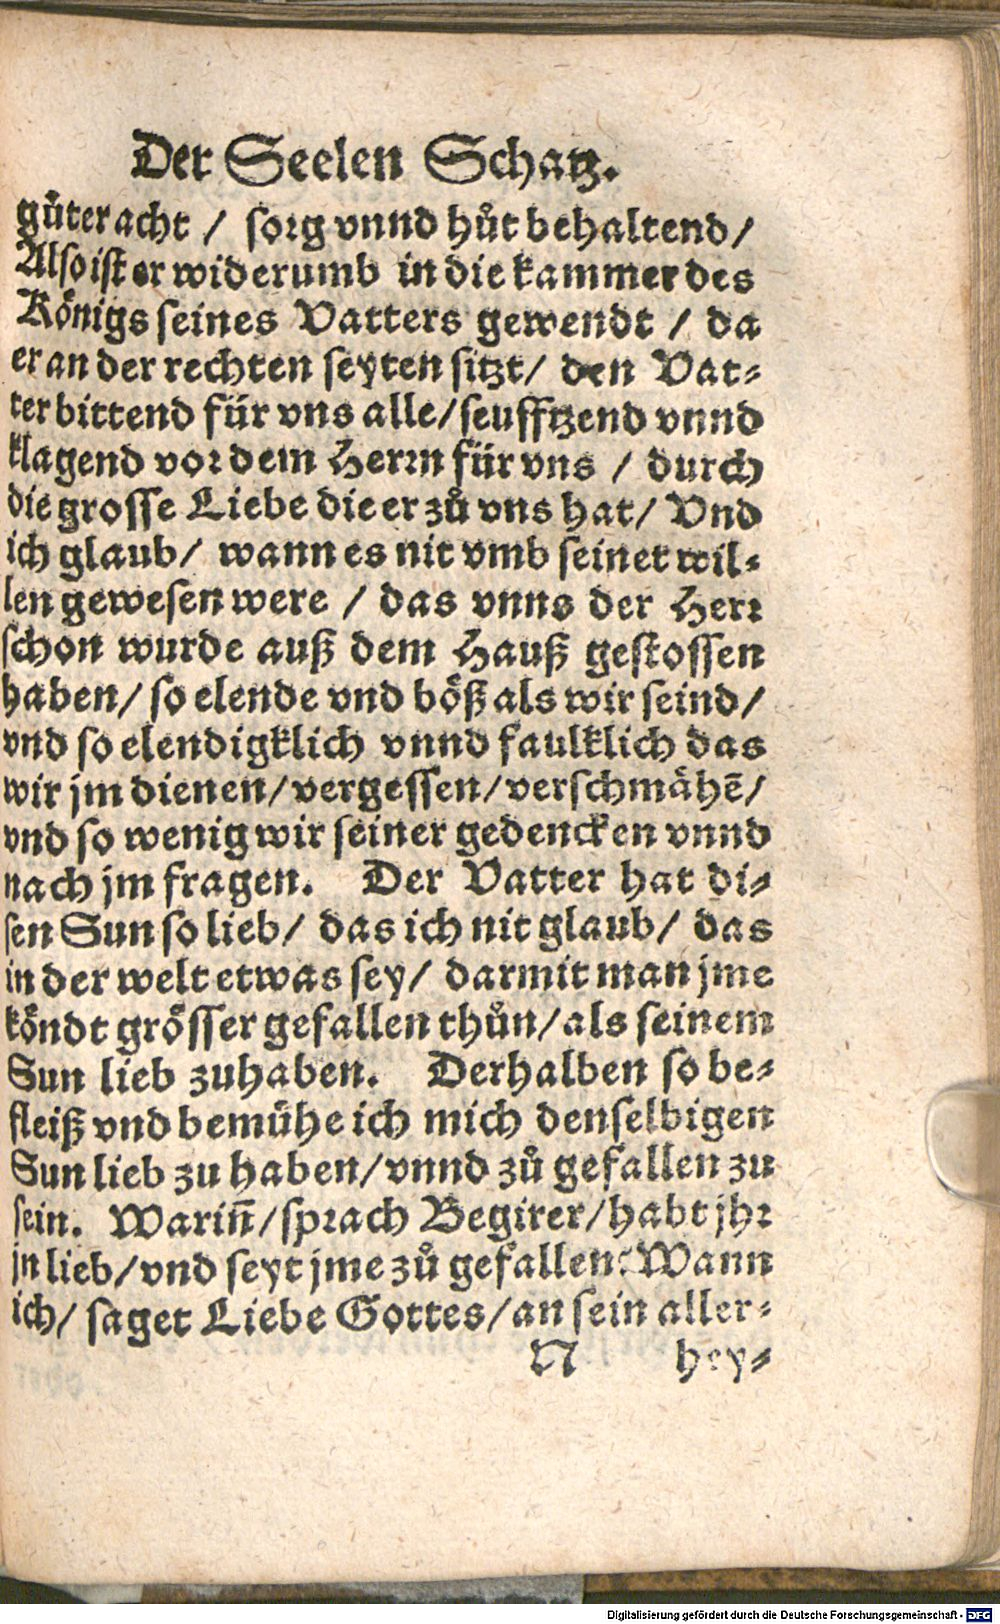 Der Seelen Schatz.
gůter acht / sorg vnnd hůt behaltend /
Also ist er widerumb in die kammer des
Königs seines Vatters gewendt / da
er an der rechten seyten sitzt / den Vat-
ter bittend für vns alle / seufftzend vnnd
klagend vor dem Herrn für vns / durch
die grosse Liebe die er zů vns hat / Vnd
ich glaub / wann es nit vmb seinet wil-
len gewesen were / das vnns der Herr
schon wurde auß dem Hauß gestossen
haben / so elende vnd böß als wir seind /
vnd so elendigklich vnnd faulklich das
wir jm dienen / vergessen / verschmähē /
vnd so wenig wir seiner gedencken vnnd
nach jm fragen. Der Vatter hat di-
sen Sun so lieb / das ich nit glaub / das
in der welt etwas sey / darmit man jme
köndt grösser gefallen thůn / als seinem
Sun lieb zuhaben. Derhalben so be-
fleiß vnd bemühe ich mich denselbigen
Sun lieb zu haben / vnnd zů gefallen zu
sein. Wariñ / sprach Begirer / habt jhr
jn lieb / vnd seyt jme zů gefallen? Wann
ich / saget Liebe Gottes / an sein aller-
N hey-
Digitalisierung gefördert durch die Deutsche Forschungsgemeinschaft - DFG